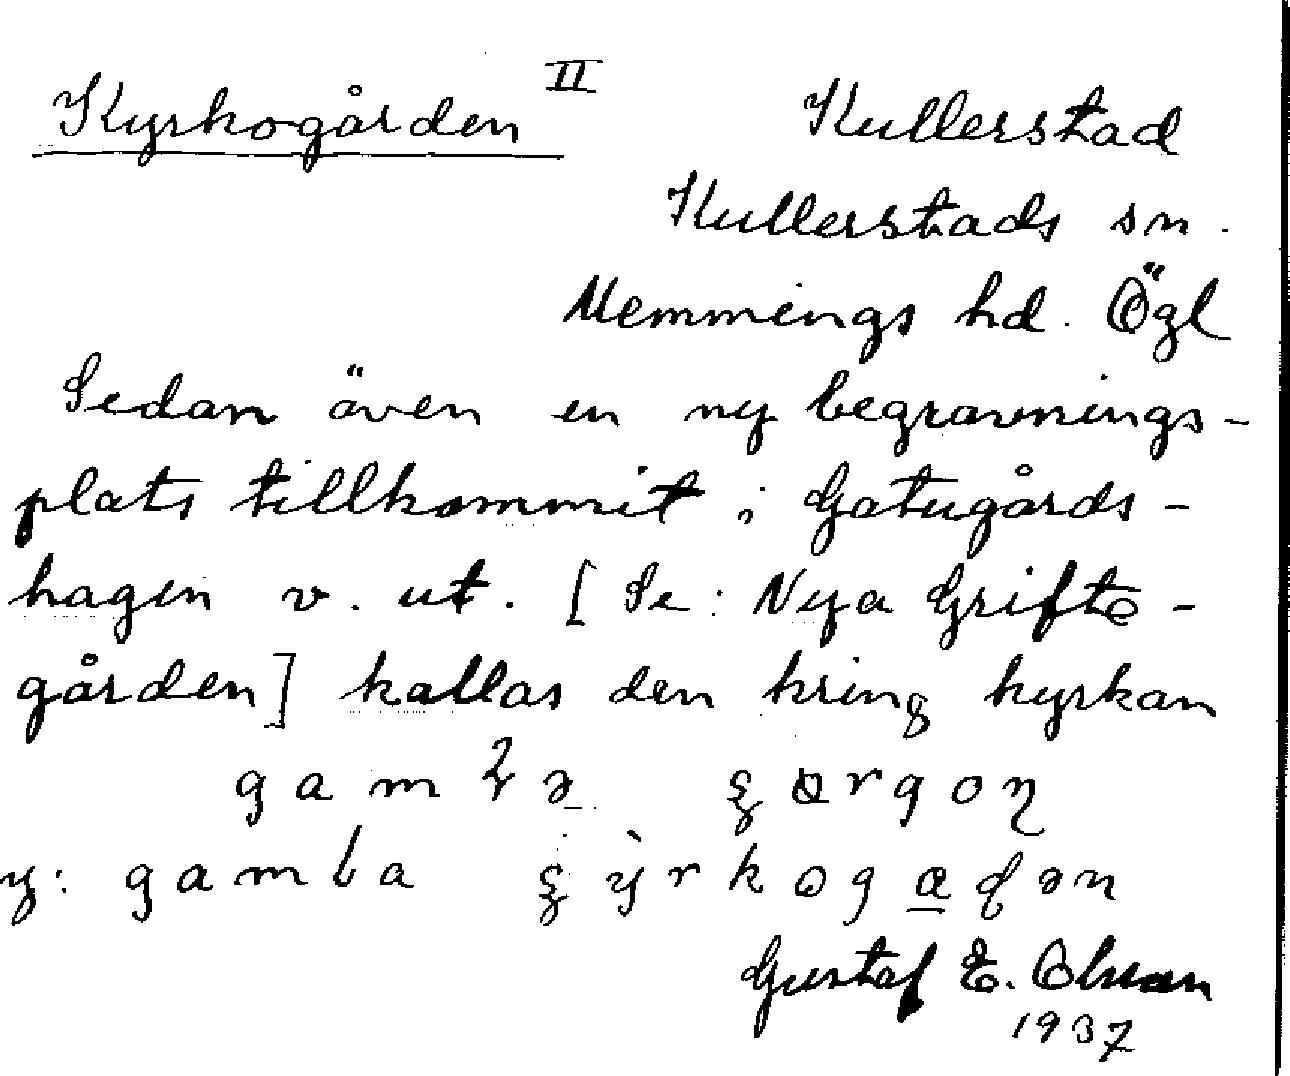 Kyrkogården II
Kullerstad
Kullerstads sn.
Memmings hd. Ögl
Sedan även en ny begravnings-
plats tillkommit i Gatugårds-
hagen v. ut. [Se: Nya Grifte-
gården] kallas den kring kyrkan
gam
y: gamla
Gustaf E. Olsson
1937